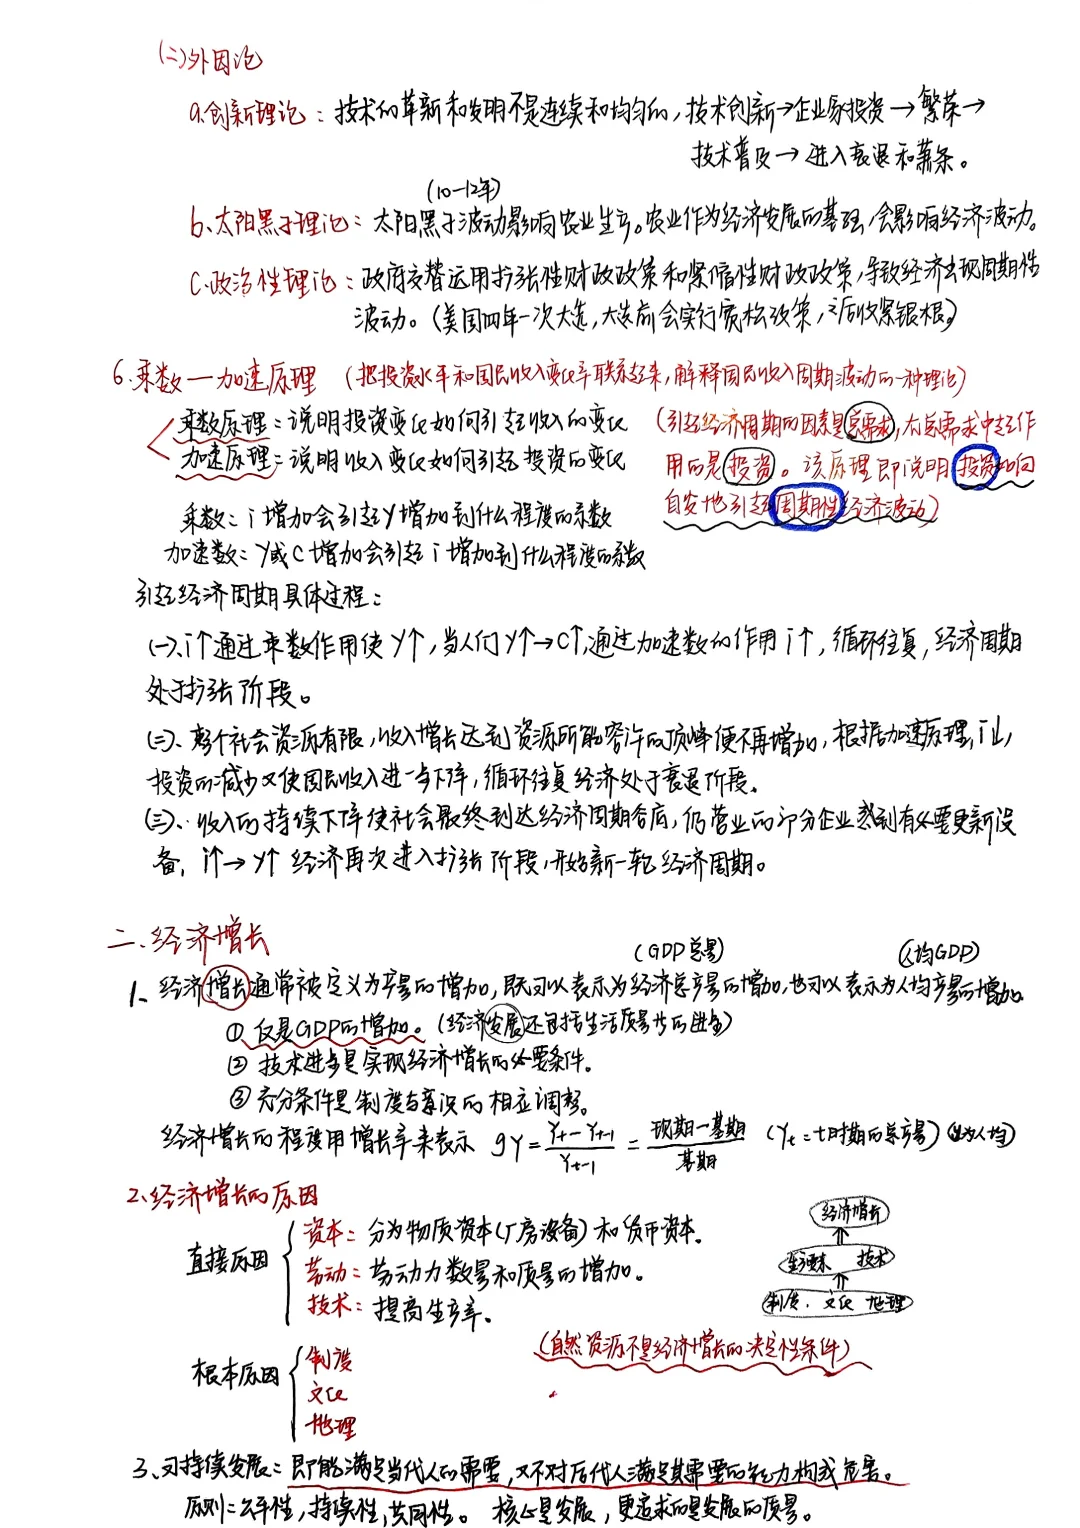 (二)外因论
a.创新理论：技术的革新和发明不是连续和均匀的，技术创新→企业家投资→繁荣→
技术普及→进入衰退和萧条。
(10-12年)
b、太阳黑子理论：太阳黑子波动影响农业生产。农业作为经济发展的基础，会影响经济波动。
C.政治性理论：政府交替运用扩张性财政政策和紧缩性财政政策，导致经济出现周期性
波动。(美国四年一次大选，大选前会实行宽松政策，之后收紧银根。)
6.乘数—加速原理 (把投资水平和国民收入变化率联系起来，解释国民收入周期波动的一种理论)
乘数原理：说明投资变化如何引起收入的变化
加速原理：说明收入变化如何引起投资的变化
(引起经济周期的因素是总需求，在总需求中起作
用的是投资。该原理即说明投资如何
自发地引起周期性经济波动)
乘数：i增加会引起Y增加到什么程度的系数
加速数：Y或C增加会引起i增加到什么程度的系数
引起经济周期具体过程：
(一)、i↑通过乘数作用使Y↑，当人们Y↑→C↑，通过加速数的作用i↑，循环往复，经济周期
处于扩张阶段。
(二)、整个社会资源有限，收入增长达到资源所能容许的顶峰便不再增加，根据加速原理，i↓，
投资的减少又使国民收入进一步下降，循环往复经济处于衰退阶段。
(三)、收入的持续下降使社会最终到达经济周期谷底，仍营业的部分企业感到有必要更新设
备，i↑→Y↑ 经济再次进入扩张阶段，开始新一轮经济周期。
二、经济增长
(GDP总量) (人均GDP)
1、经济增长通常被定义为产量的增加，既可以表示为经济总产量的增加，也可以表示为人均产量的增加。
① 仅是GDP的增加。(经济发展还包括生活质量等的进步)
② 技术进步是实现经济增长的必要条件。
③ 充分条件是制度与意识的相应调整。
经济增长的程度用增长率来表示 gY=(Yt-Yt-1)/Yt-1=(现期-基期)/基期 (Yt：t时期的总产量)(yt为人均)
2、经济增长的原因
直接原因
资本：分为物质资本(厂房设备)和货币资本。
劳动：劳动力数量和质量的增加。
技术：提高生产率。
经济增长
⇑
生产要素 技术
⇑
制度、文化 地理
根本原因
制度
文化
地理
(自然资源不是经济增长的决定性条件)
3、可持续发展：即能满足当代人的需要，又不对后代人满足其需要的能力构成危害。
原则：公平性，持续性，共同性。 核心是发展，更追求的是发展的质量。